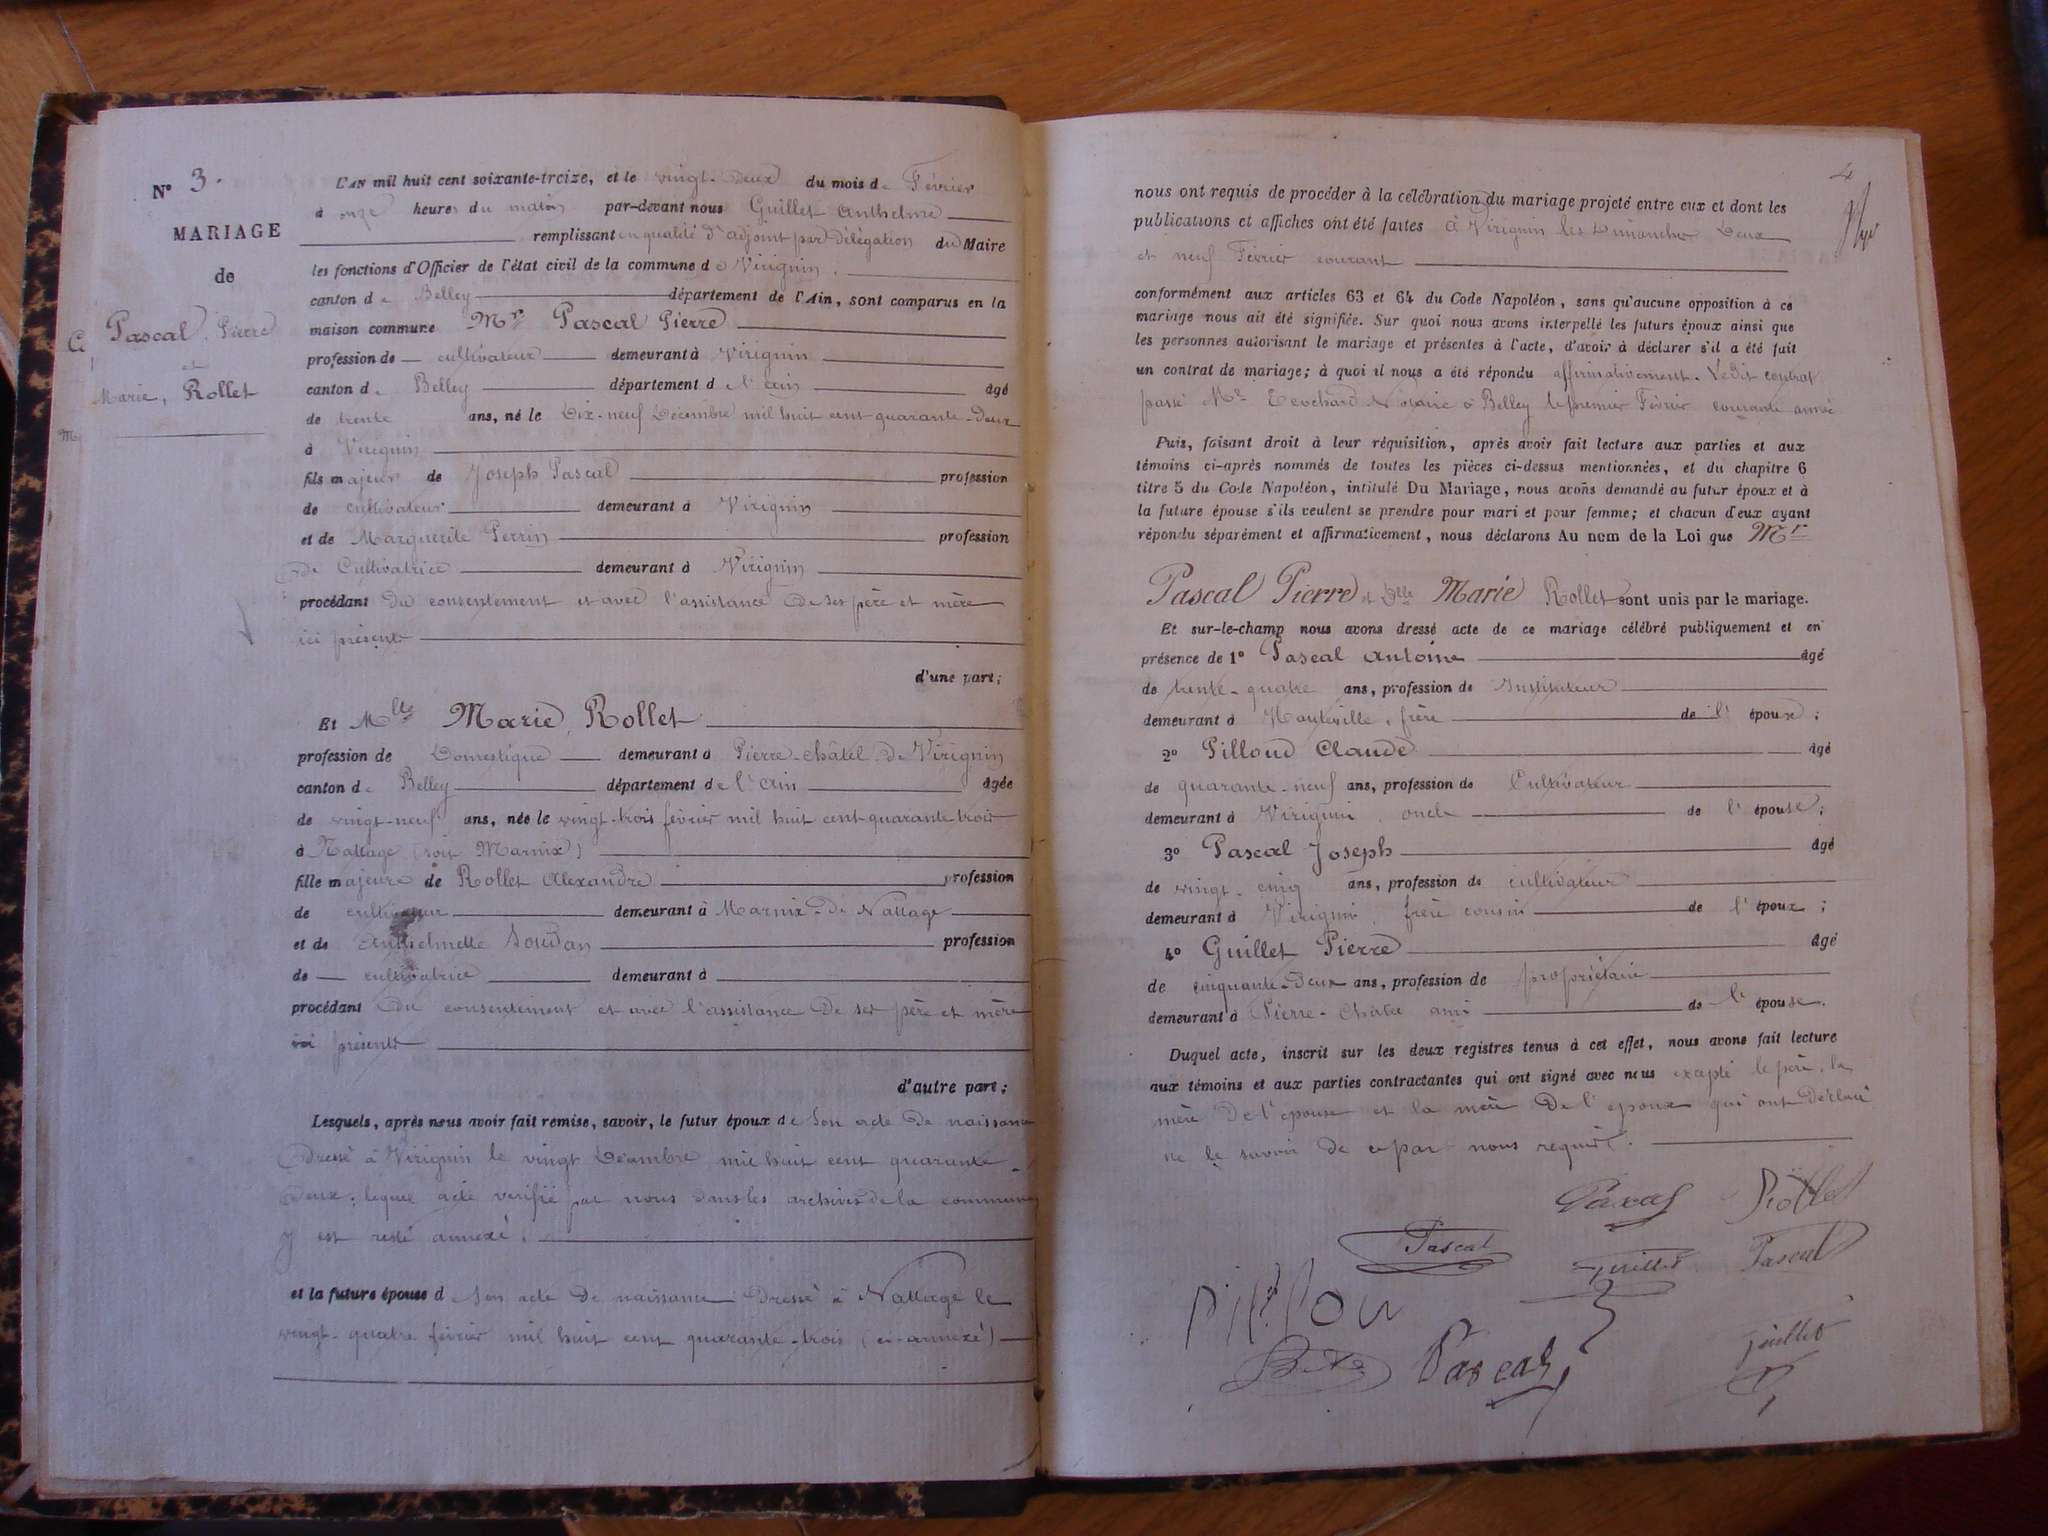 N° 3.
MARIAGE
de
Pascal, Pierre
et
Marie, Rollet
L'AN mil huit cent soixante-treize, et le vingt-Deux du mois de Février
à onze heures du matin par-devant nous Guillet Anthelme
remplissant en qualité d'adjoint par Délégation du Maire
les fonctions d'Officier de l'état civil de la commune de Virignin.
canton de Belley département de l'Ain, sont comparus en la
maison commune Mr Pascal Pierre
profession de cultivateur demeurant à Virignin
canton de Belley département de l'Ain âgé
de trente ans, né le Dix-neuf Décembre mil huit cent quarante-Deux
à Virignin
fils majeur de Joseph Pascal profession
de cultivateur demeurant à Virignin
et de Marguerite Perrin profession
de Cultivatrice demeurant à Virignin
procédant Du consentement et avec l'assistance De ses père et mère
ici présents
d'une part;
Et Mlle Marie, Rollet
profession de Domestique demeurant à Pierre-Châtel De Virignin
canton de Belley département de l'Ain âgée
de vingt-neuf ans, née le vingt-trois février mil huit cent quarante trois
à Nattage (soit Marnix)
fille majeure de Rollet Alexandre profession
de cultivateur demeurant à Marnix-De Nattage
et de Anthelmette Soudan profession
de cultivatrice demeurant à
procédant Du consentement et avec l'assistance De ses père et mère
ici présents
d'autre part;
Lesquels, après nous avoir fait remise, savoir, le futur époux de Son acte De naissance
Dressé à Virignin le vingt Décembre mil huit cent quarante-
Deux; lequel acte vérifié par nous dans les archives de la commune
y est resté annexé.
et la future épouse d Son acte De naissance Dressé à Nattage le
vingt-quatre février mil huit cent quarante-trois (ci-annexé)
4
nous ont requis de procéder à la célébration du mariage projeté entre eux et dont les
publications et affiches ont été faites à Virignin les Dimanches Deux
et neuf Février courant
conformément aux articles 63 et 64 du Code Napoléon, sans qu'aucune opposition à ce
mariage nous ait été signifiée. Sur quoi nous avons interpellé les futurs époux ainsi que
les personnes autorisant le mariage et présentes à l'acte, d'avoir à déclarer s'il a été fait
un contrat de mariage; à quoi il nous a été répondu affirmativement. Ledit contrat
passé Me Notaire à Belley le premier Février courante année
Puis, faisant droit à leur réquisition, après avoir fait lecture aux parties et aux
témoins ci-après nommés de toutes les pièces ci-dessus mentionnées, et du chapitre 6
titre 5 du Code Napoléon, intitulé Du Mariage, nous avons demandé au futur époux et à
la future épouse s'ils veulent se prendre pour mari et pour femme; et chacun d'eux ayant
répondu séparément et affirmativement, nous déclarons Au nom de la Loi que Mr
Pascal Pierre et Dlle Marie Rollet sont unis par le mariage.
Et sur-le-champ nous avons dressé acte de ce mariage célébré publiquement et en
présence de 1° Pascal Antoine âgé
de trente-quatre ans, profession de Instituteur
demeurant à Hauteville, frère de l'époux;
2° Pilloud Claude âgé
de quarante-neuf ans, profession de Cultivateur
demeurant à Virignin, oncle de l'épouse;
3° Pascal Joseph âgé
de vingt-cinq ans, profession de cultivateur
demeurant à Virignin, frère cousin de l'époux;
4° Guillet Pierre âgé
de cinquante-Deux ans, profession de propriétaire
demeurant à Pierre-Châtel ami de l'épouse.
Duquel acte, inscrit sur les deux registres tenus à cet effet, nous avons fait lecture
aux témoins et aux parties contractantes qui ont signé avec nous excepté le père, la
mère De l'épouse et la mère De l'époux qui ont Déclaré
ne le savoir De ce par nous requis.
Pascal Rollet
Pascal Guillet Pascal
Pillou
Pascal Guillet